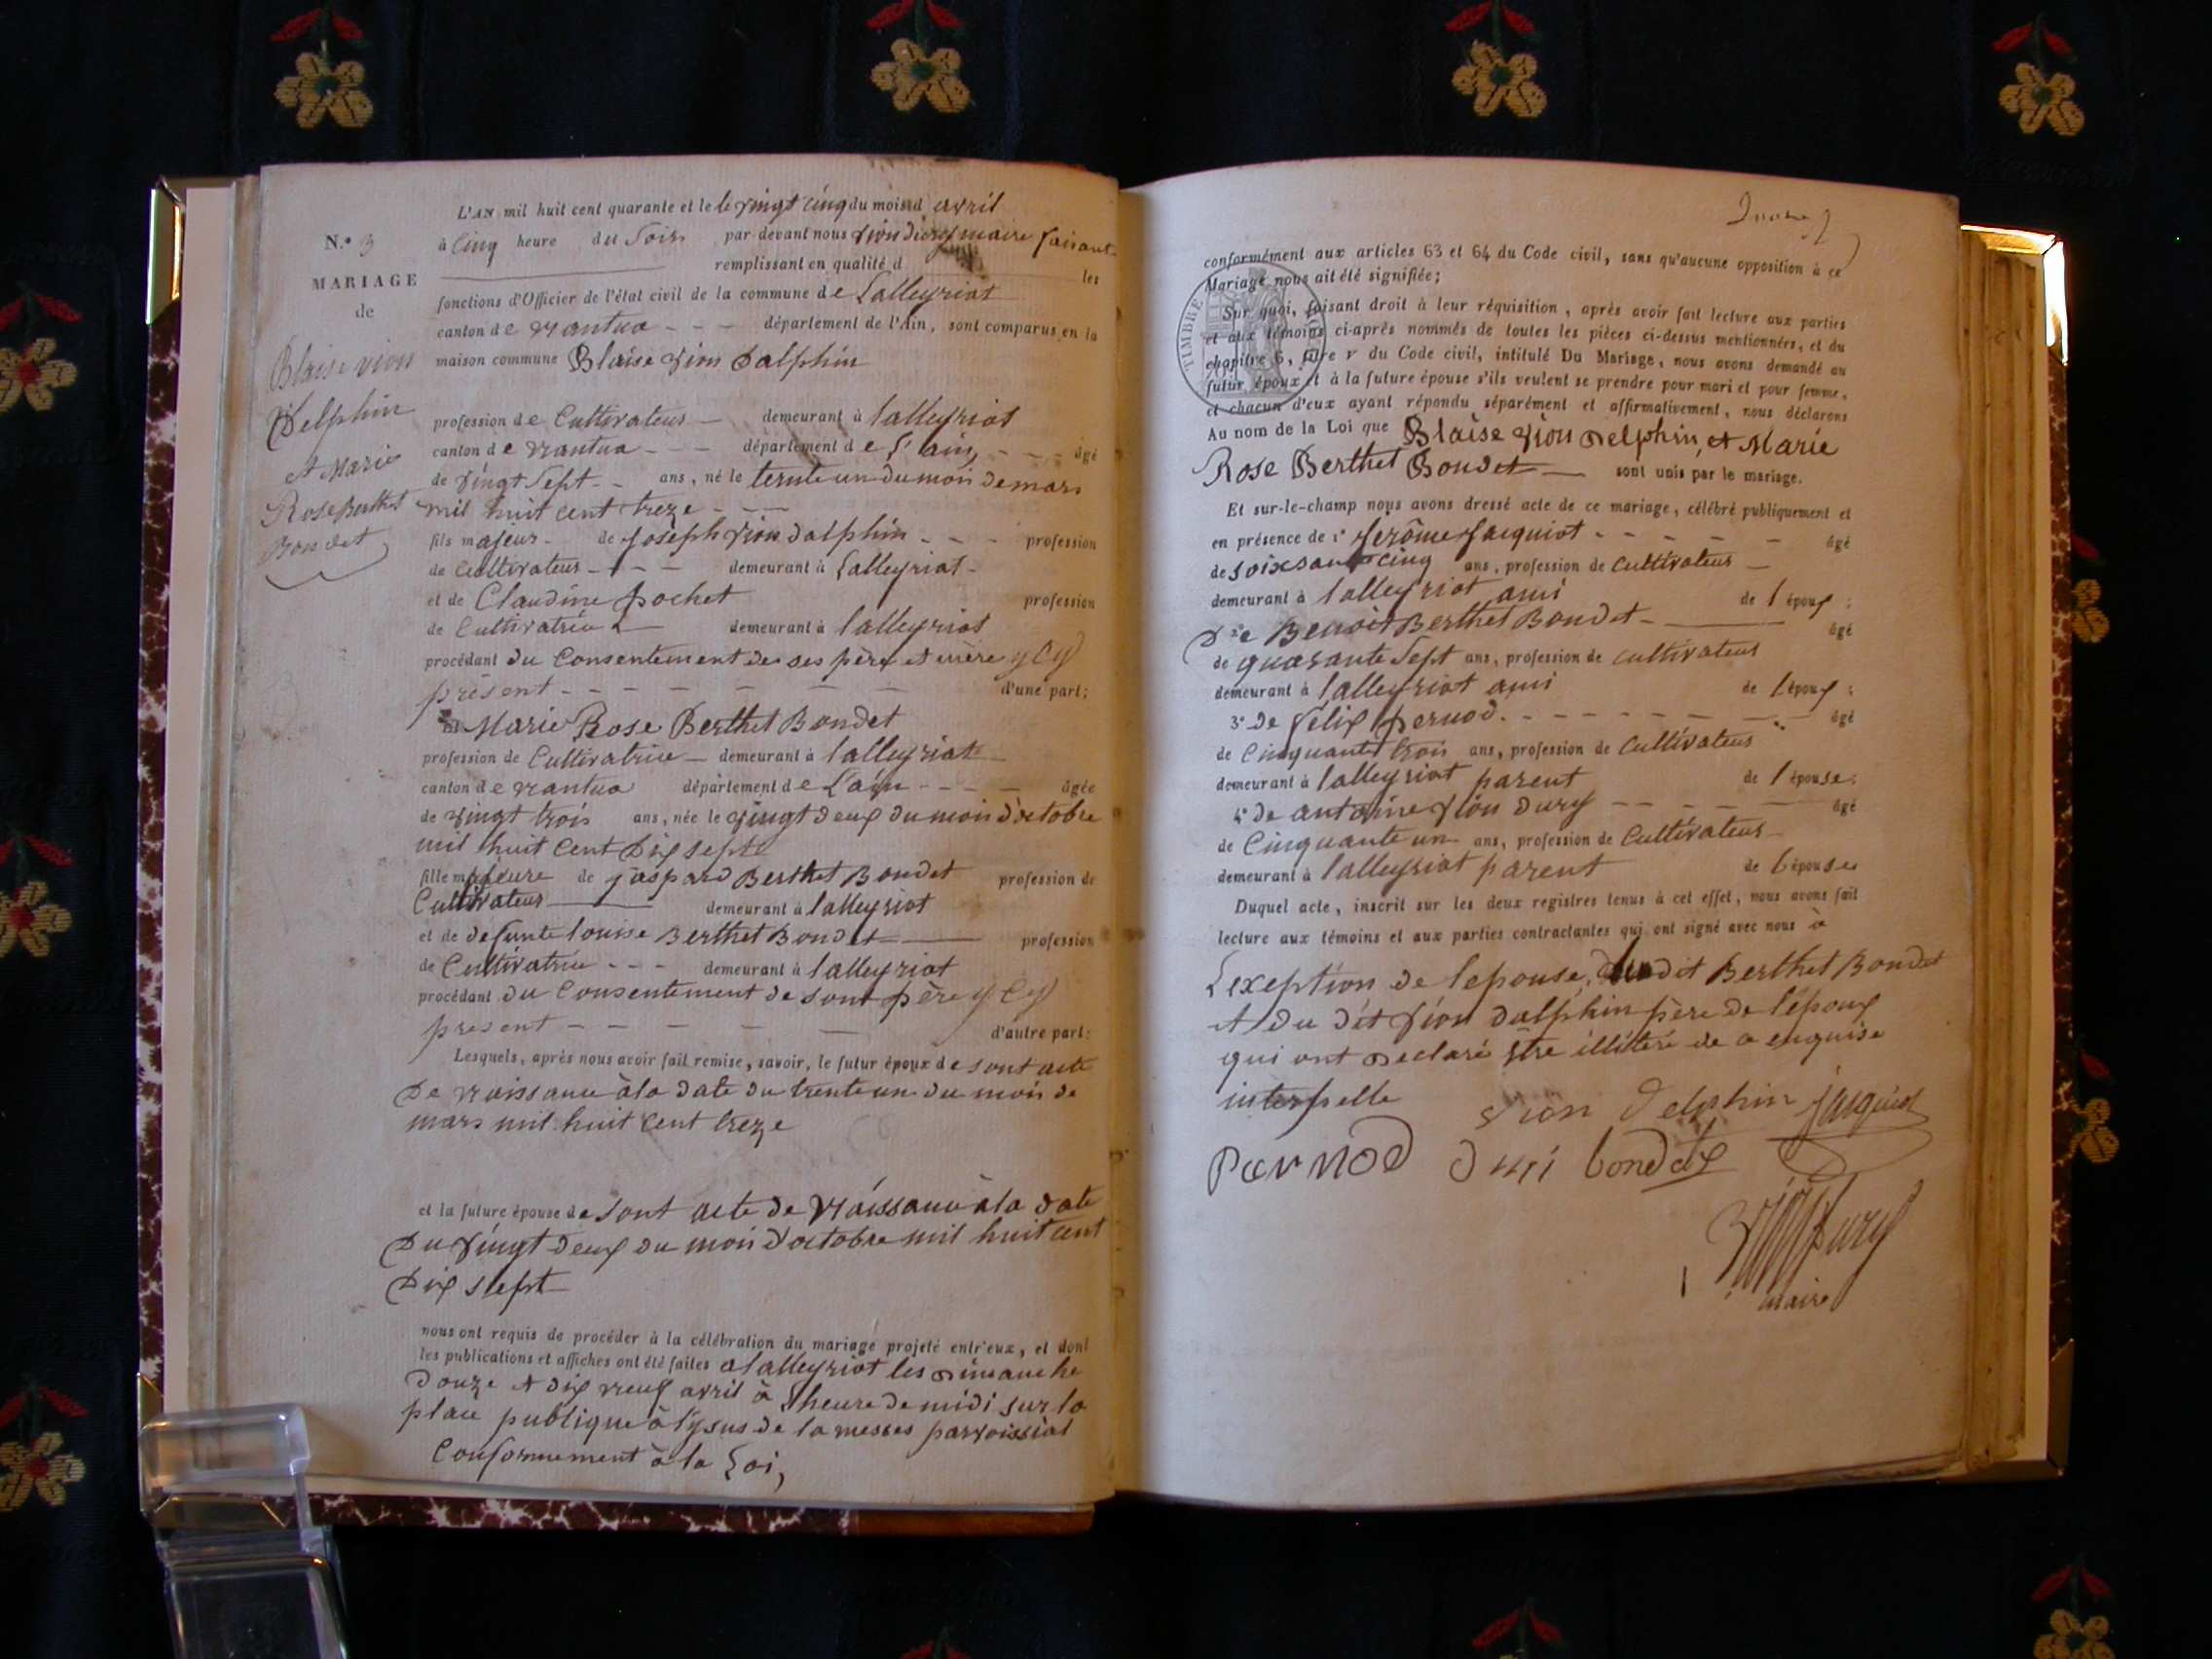 L'AN mil huit cent quarante et le le vingt cinq du mois d avril
N.° 3
à cinq heure du soir par-devant nous vion dury maire faisant
remplissant en qualité d les
MARIAGE
de
Blaise vion
Delphin
et Marie
Rose Berthet
Bondet
fonctions d'Officier de l'état civil de la commune de Lalleyriat
canton de nantua département de l'Ain, sont comparus en la
maison commune Blaise vion Dalphin
profession de Cultivateur demeurant à lalleyriat
canton de nantua département de l'ain âgé
de vingt sept ans, né le trente un du mois de mars
mil huit cent treze
fils majeur de joseph vion dalphin profession
de Cultivateur demeurant à Lalleyriat
et de Claudine pochet profession
de Cultivatrice demeurant à lalleyriat
procédant du Consentement de ses père et mère y Cy
présent d'une part;
Et Marie Rose Berthet Bondet
profession de Cultivatrice demeurant à lalleyriat
canton de nantua département de L'ain âgée
de vingt trois ans, née le vingt deux du mois d'octobre
mil huit Cent dix sept
fille majeure de jaspard Berthet Bondet profession de
Cultivateur demeurant à lalleyriat
et de defunte louise Berthet Bondet profession
de Cultivatrice demeurant à lalleyriat
procédant du Consentement de sont père y Cy
present d'autre part:
Lesquels, après nous avoir fait remise, savoir, le futur époux de sont acte
De naissance à la date du trente un du mois de
mars mil huit Cent treze
et la future épouse de sont acte de naissance à la date
Du vingt deux du mois d'octobre mil huit cent
Dix sept
nous ont requis de procéder à la célébration du mariage projeté entr'eux, et dont
les publications et affiches ont été faites a lalleyriat les dimanche
douze et dix neuf avril à l'heure de midi sur la
place publique à l'ysus de la messes parroissial
Conformement à la Loi,
conformément aux articles 63 et 64 du Code civil, sans qu'aucune opposition à ce
Mariage nous ait été signifiée;
TIMBRE
Sur quoi, faisant droit à leur réquisition, après avoir fait lecture aux parties
et aux témoins ci-après nommés de toutes les pièces ci-dessus mentionnées, et du
chapitre 6, titre v du Code civil, intitulé Du Mariage, nous avons demandé au
futur époux et à la future épouse s'ils veulent se prendre pour mari et pour femme,
et chacun d'eux ayant répondu séparément et affirmativement, nous déclarons
Au nom de la Loi que Blaise vion Delphin, et Marie
Rose Berthet Bondet sont unis par le mariage.
Et sur-le-champ nous avons dressé acte de ce mariage, célébré publiquement et
en présence de 1° Jerôme Jacquiot âgé
de soixsante cinq ans, profession de cultivateur
demeurant à lalleyriat ami de l époux;
2° De Benoit Berthet Bondet âgé
de quarante sept ans, profession de cultivateur
demeurant à lalleyriat ami de l époux;
3° De félix pernod âgé
de Cinquante trois ans, profession de Cultivateur
demeurant à lalleyriat parent de l épouse;
4° De antoine vion dury âgé
de Cinquante un ans, profession de Cultivateur
demeurant à lalleyriat parent de l épouse
Duquel acte, inscrit sur les deux registres tenus à cet effet, nous avons fait
lecture aux témoins et aux parties contractantes qui ont signé avec nous à
L'exeption de lepouse, dudit Berthet Bondet
et du dit vion dalphin père de l'époux
qui ont declaré être illittéré de ce enquise
interpelle vion Delphin jacquiot
PerNOD duri bondet
vion Dury
maire